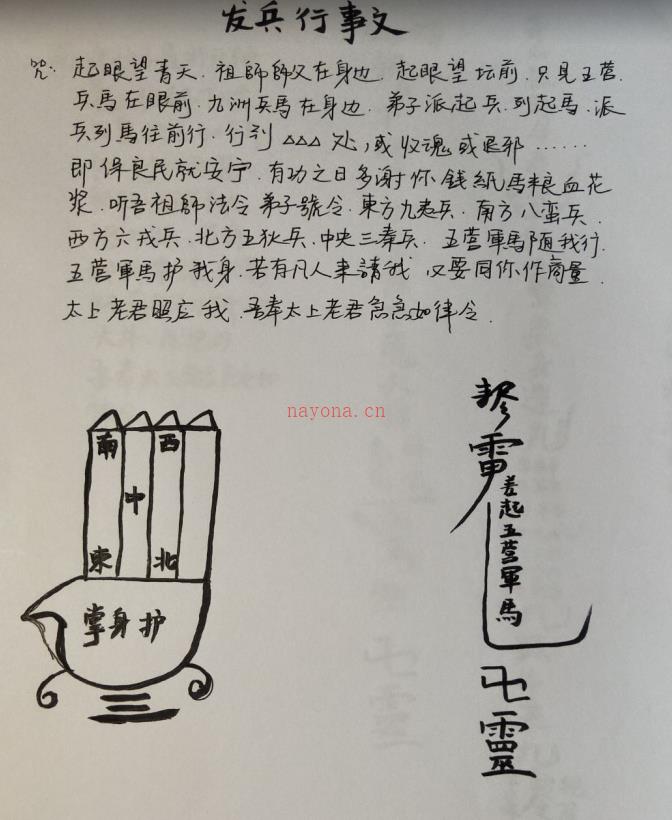 发兵行事文
咒: 起眼望青天.祖師師父在身边.起眼望坛前.只見五营.
兵馬在眼前.九洲兵馬在身边.弟子派起兵.列起馬.派
兵列馬往前行.行到△△△处,或收魂或退邪……
即保良民就安宁.有功之日多谢你錢紙馬粮血花
浆.听吾祖師法令弟子號令.東方九夷兵.南方八蛮兵.
西方六戎兵.北方五狄兵.中央三秦兵.五营軍馬随我行.
五营軍馬护我身.若有凡人来請我.又要同你作商量.
太上老君照应我.吾奉太上老君急急如律令.
nayona.cn
南 西
中
東 北
掌身护
雷
差起五营軍馬
卍靈